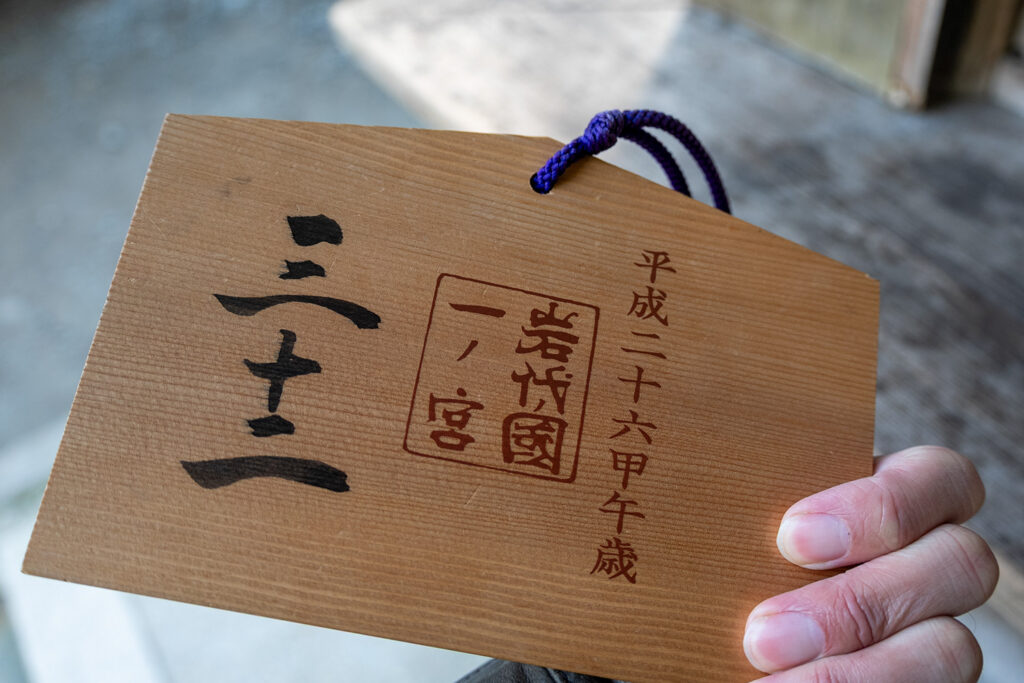 平成二十六甲午歳
岩代ノ國
一ノ宮
三十二